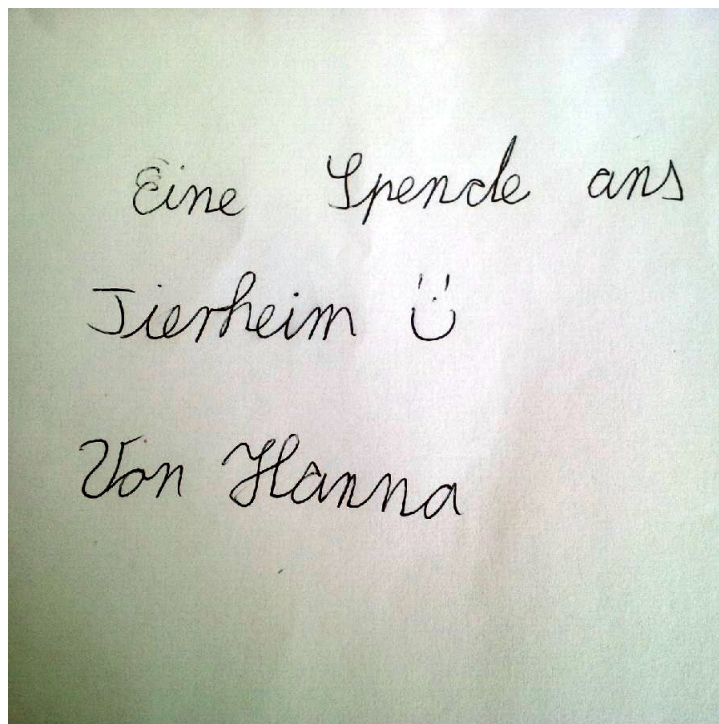 Eine Spende ans
Tierheim
Von Hanna